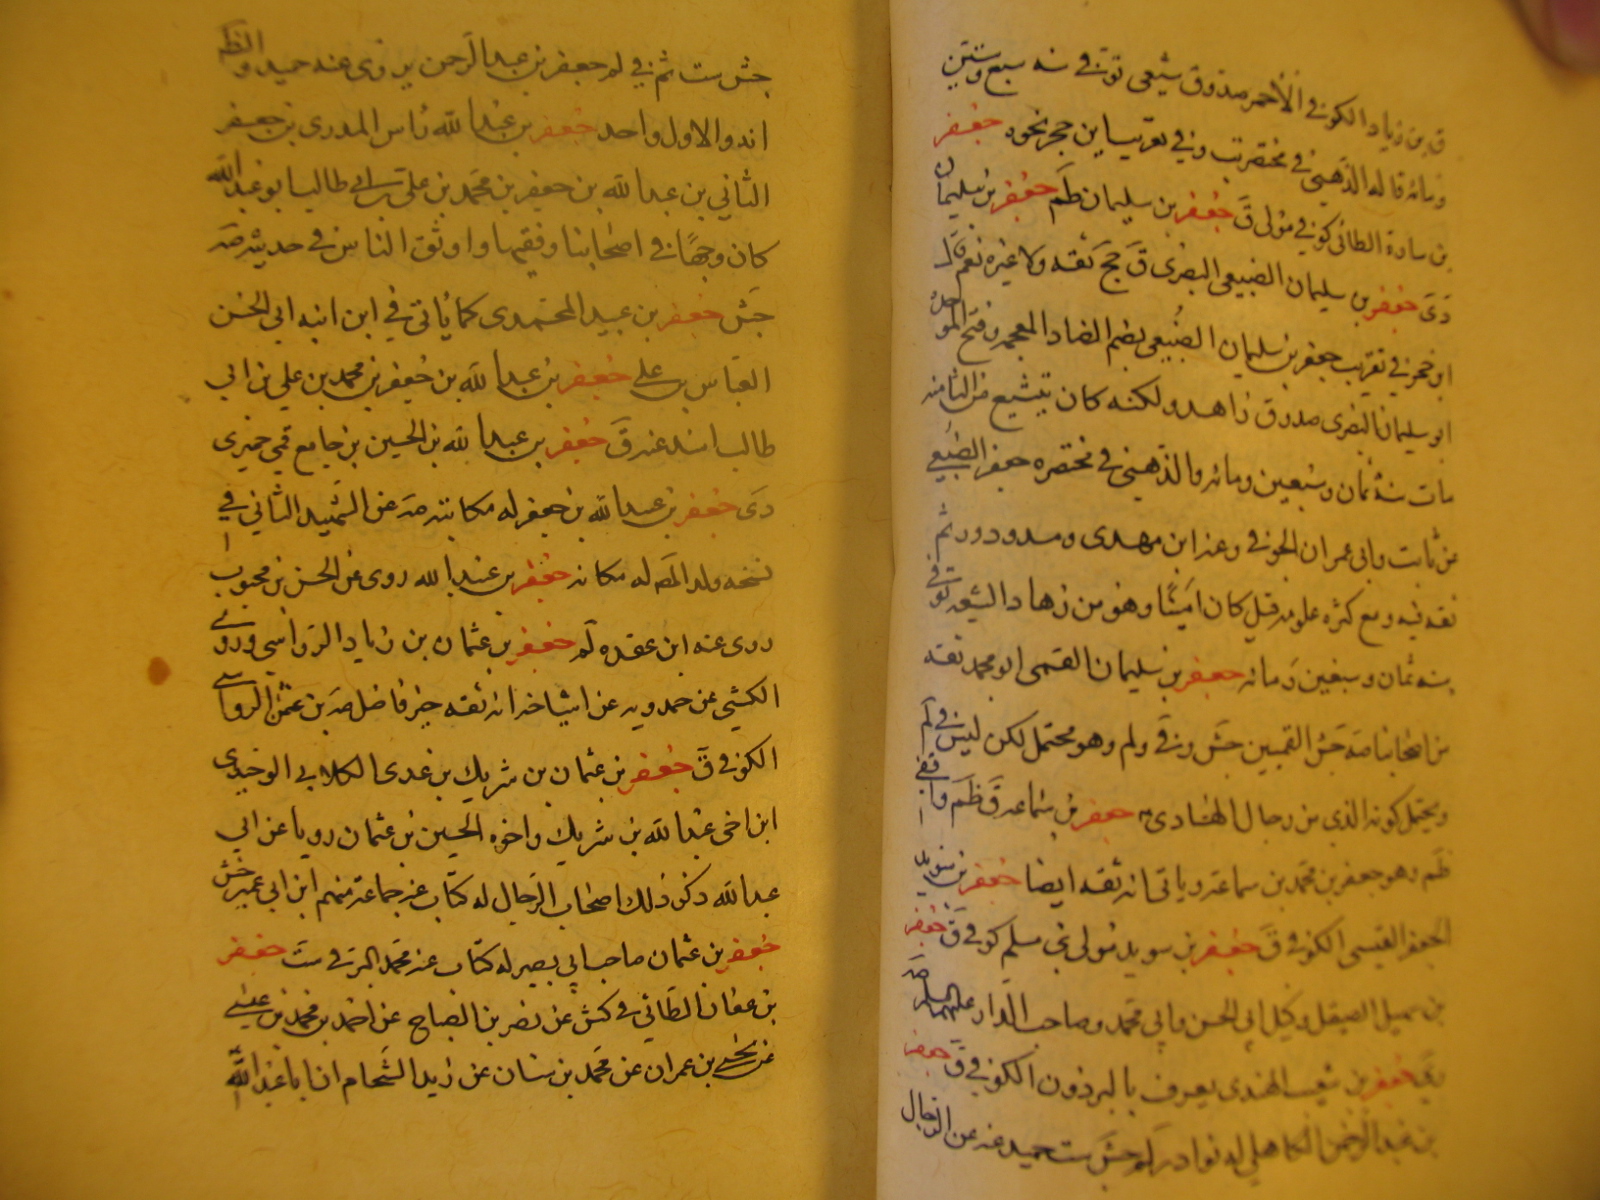 ق بن زياد الكوفي الأحمر صدوق شيعي توفي سنه سبع وستين
ومائه قاله الذهبي في مختصر تب وفي تقريب ابن حجر نحوه جعفر
بن سادة الطائي كوفي مولى ق جعفر بن سليمان ظم جعفر بن سليمان
دى جعفر بن سليمان الضبيعي البصرى ق جخ ثقه ولا غيره نعم قال
ابن حجر في تقريب جعفر بن سليمان الضبيعي بضم الضاد المعجمه وفتح الموحده
ابو سليمان البصرى صدوق زاهد ولكنه كان يتشيع من الثامنه
مات سنة ثمان وسبعين ومائه والذهبي في مختصره جعفر الضبيعي
عن ثابت وابي عمران الجوني وعنه ابن مهدى ومسدد
ثقه فيه ومع كثره علومه قيل كان اميا وهو من زهاد الشيعه توفي
سنه ثمان وسبعين ومائه جعفر بن سليمان القمي ابو محمد ثقه
من اصحابنا صه جش القميين جش وفي ق ولم وهو محتمل لكن ليس في لم
ويحتمل كونه الذي من رجال الهادى جعفر بن سماعه ق ظم واقفي
ظم وهو جعفر بن محمد بن سماعه وياتى انه ثقه ايضا جعفر بن سويد
الجعفي القيسي الكوفي ق جعفر بن سويد مولى بني مسلم كوفي ق جعفر
بن سهيل الصيقل وكيل ابي الحسن وابي محمد وصاحب الدار عليهم السلام
رى جعفر بن الهندى يعرف بالبرذون الكوفي ق جعفر
بن عبد الرحمن الكاهلي له نوادر لم جش ست حميد عنه عن الرجال
جش ست ثم في لم جعفر بن عبد الرحمن يروى عنه حميد والظم
انه والاول واحد جعفر بن عبد الله راس المدرى بن جعفر
الثاني بن عبد الله بن جعفر بن محمد بن علي بن ابي طالب ابو عبد الله
كان وجها في اصحابنا وفقيها واوثق الناس في حديثه صه
جش جعفر بن عبيد المحمدى كما ياتى في ابن ابنه ابي الحسن
العباس بن علي جعفر بن عبد الله بن جعفر بن محمد بن علي بن ابي
طالب اسند عنه ق جعفر بن عبد الله بن الحسين بن جامع قمي حميرى
دى جعفر بن عبد الله بن جعفر له مكاتبه صه عن الشهيد الثاني في
نسخه ولد المص له مكانه جعفر بن عبد الله روى عن الحسن بن محبوب
روى عنه ابن عقده لم جعفر بن عثمان بن زياد الرواسي وروى
الكشي عن حمدويه عن اشياخه انه ثقه خير فاضل صه بن عثمن الرواسي
الكوفي ق جعفر بن عثمان بن شريك بن عدى الكلابي الوحيدى
ابن اخي عبد الله بن شريك واخوه الحسين بن عثمان رويا عن ابي
عبد الله ذكر ذلك اصحاب الرجال له كتاب عنه جماعة منهم ابن ابي عمير جش
جعفر بن عثمان صاحب ابي بصير له كتاب عنه محمد البرقي ست جعفر
بن عفان الطائي في كش عن نصر بن الصباح عن احمد بن محمد بن عيسى
عن يحيى بن عمران عن محمد بن سنان عن زيد الشحام ان ابا عبد الله